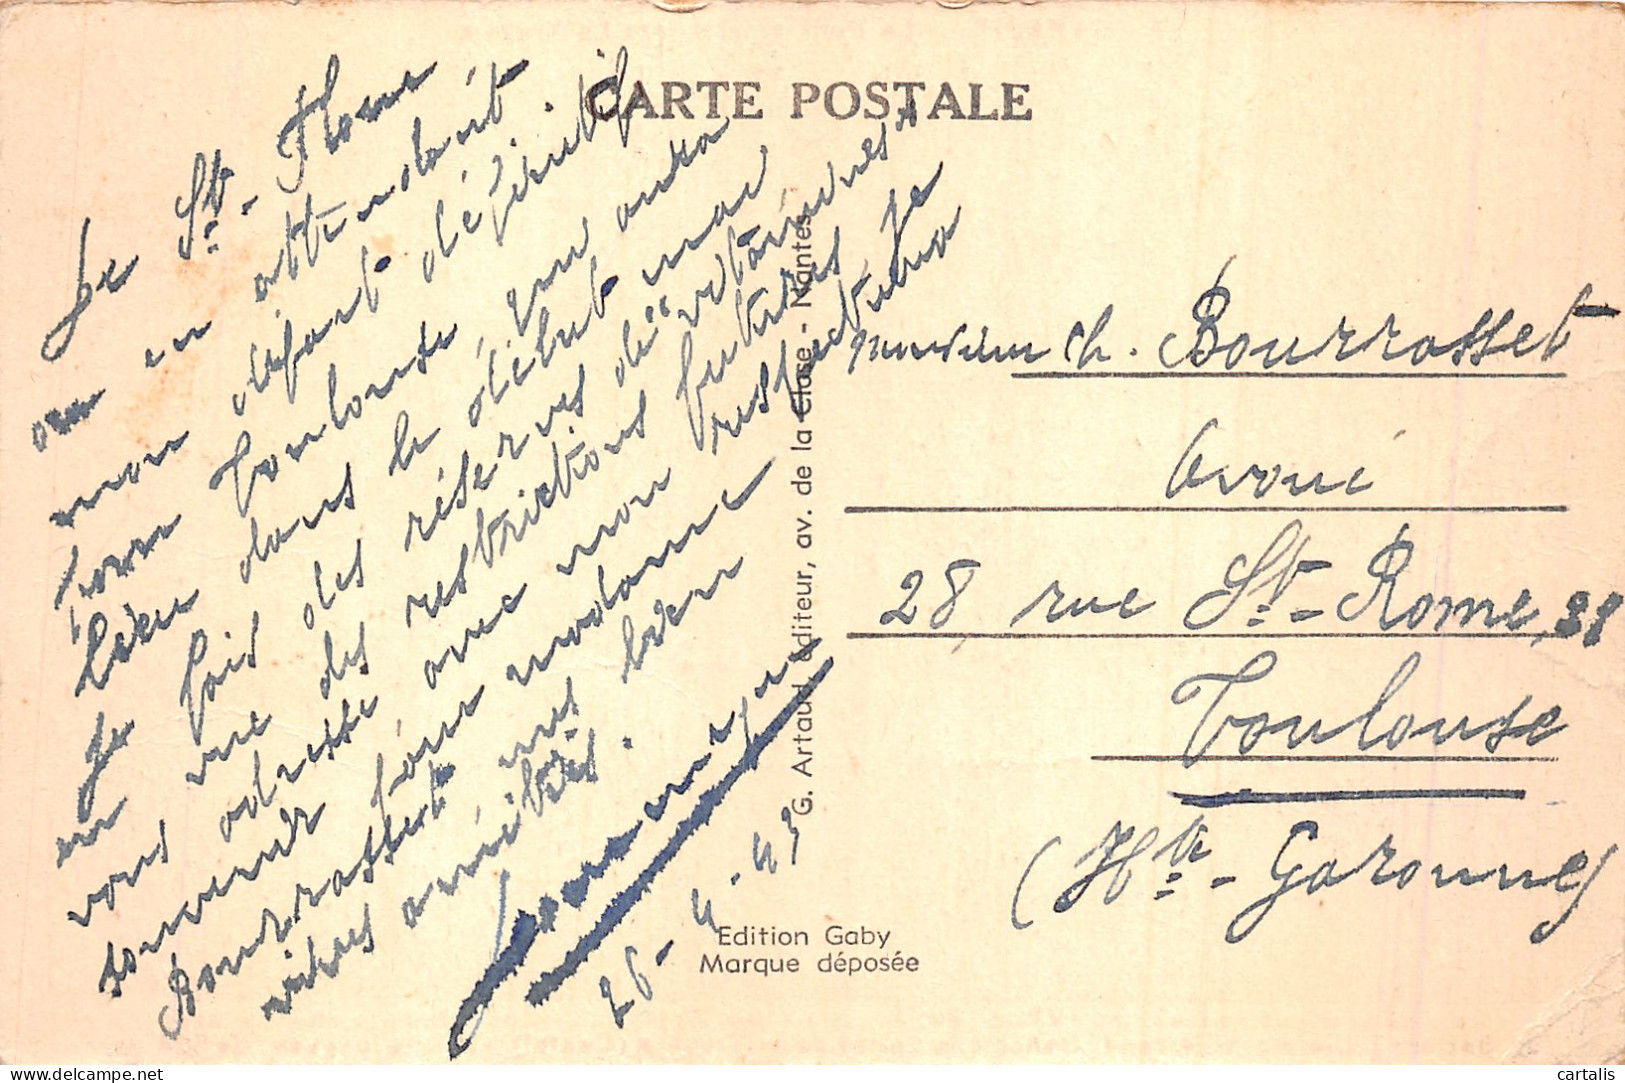 CARTE POSTALE
De St-Flour
où en attendant
mon départ définitif
pour Toulouse qui aura
lieu dans le début mai
Je fais des réserves de "vitamines"
en vue des restrictions futures Je
vous adresse avec mon respectueux
souvenir pour madame
Bourrasset mes bien
vives amitiés.
26-4-43
G. Artaud, éditeur, av. de la Close - Nantes
Edition Gaby
Marque déposée
monsieur Ch. Bourrasset
avoué
28, rue St-Rome, 28
Toulouse
(Hte-Garonne)
cartalis